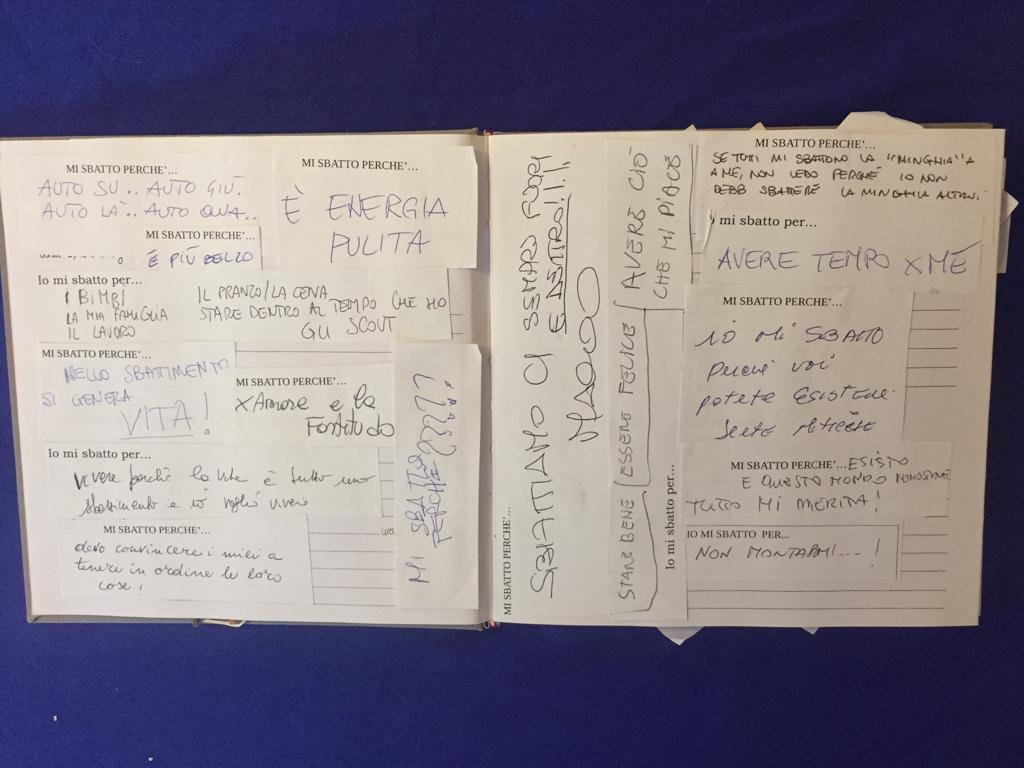 MI SBATTO PERCHE'...
AUTO SU.. AUTO GIÙ.
AUTO LÀ.. AUTO QUA..
MI SBATTO PERCHE'...
È PIÙ BELLO
MI SBATTO PERCHE'...
È ENERGIA
PULITA
Io mi sbatto per...
I BIMBI
LA MIA FAMIGLIA
IL LAVORO
IL PRANZO/LA CENA
STARE DENTRO AL TEMPO CHE HO
GLI SCOUT
MI SBATTO PERCHE'...
NELLO SBATTIMENTO
SI GENERA
VITA!
MI SBATTO PERCHE'...
X Amore e la
Fortitudo
Io mi sbatto per...
vivere perchè la vita è tutto uno
sbattimento e io voglio vivere
MI SBATTO PERCHE'...
devo convincere i miei a
tenere in ordine le loro
cose!
MI SBATTO
PERCHÉ
MI SBATTO PERCHE'...
SBATTIAMO CI
FUORI
E DENTRO!!!!
Io mi sbatto per...
STAR BENE / ESSERE FELICE / AVERE CIÒ
CHE MI PIACE
MI SBATTO PERCHE'...
SE TUTTI MI SBATTONO LA "MINGHIA" A
A ME, NON VEDO PERCHÉ IO NON
DEBB SBATTERE LA MINGHIA ALTRUI.
mi sbatto per...
AVERE TEMPO X ME
MI SBATTO PERCHE'...
IO MI SBATTO
Perché voi
potete esistere.
siete
MI SBATTO PERCHE'... ESISTO
E QUESTO MONDO NONOSTANTE
TUTTO MI MERITA!
IO MI SBATTO PER...
NON MONTARMI....!